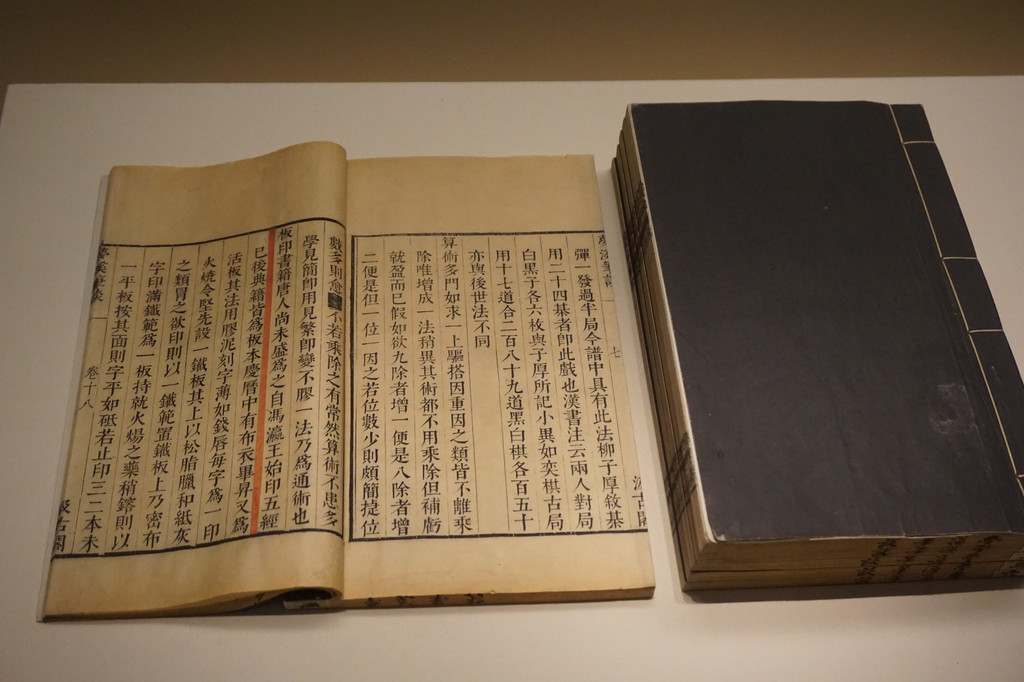 七
彈一發過半局今譜中具有此法柳子厚敘棊
用二十四棊者即此戲也漢書注云兩人對局
白黑子各六枚與子厚所記小異如奕棋古局
用十七道合二百八十九道黑白棋各百五十
亦與後世法不同
算術多門如求一上驅搭因重因之類皆不離乗
除唯增成一法稍異其術都不用乗除但補虧
就盈而已假如欲九除者增一便是八除者增
二便是但一位一因之若位數少則頗簡捷位
數多則愈不若乗除之有常然算術不患多
學見簡即用見繁即變不膠一法乃爲通術也
板印書籍唐人尚未盛爲之自馮瀛王始印五經
已後典籍皆爲板本慶曆中有布衣畢昇又爲
活板其法用膠泥刻字薄如錢唇每字爲一印
火燒令堅先設一鐵板其上以松脂臘和紙灰
之類冒之欲印則以一鐵範置鐵板上乃密布
字印滿鐵範爲一板持就火煬之藥稍鎔則以
一平板按其面則字平如砥若止印三二本未
夢溪筆談 卷十八 汲古閣